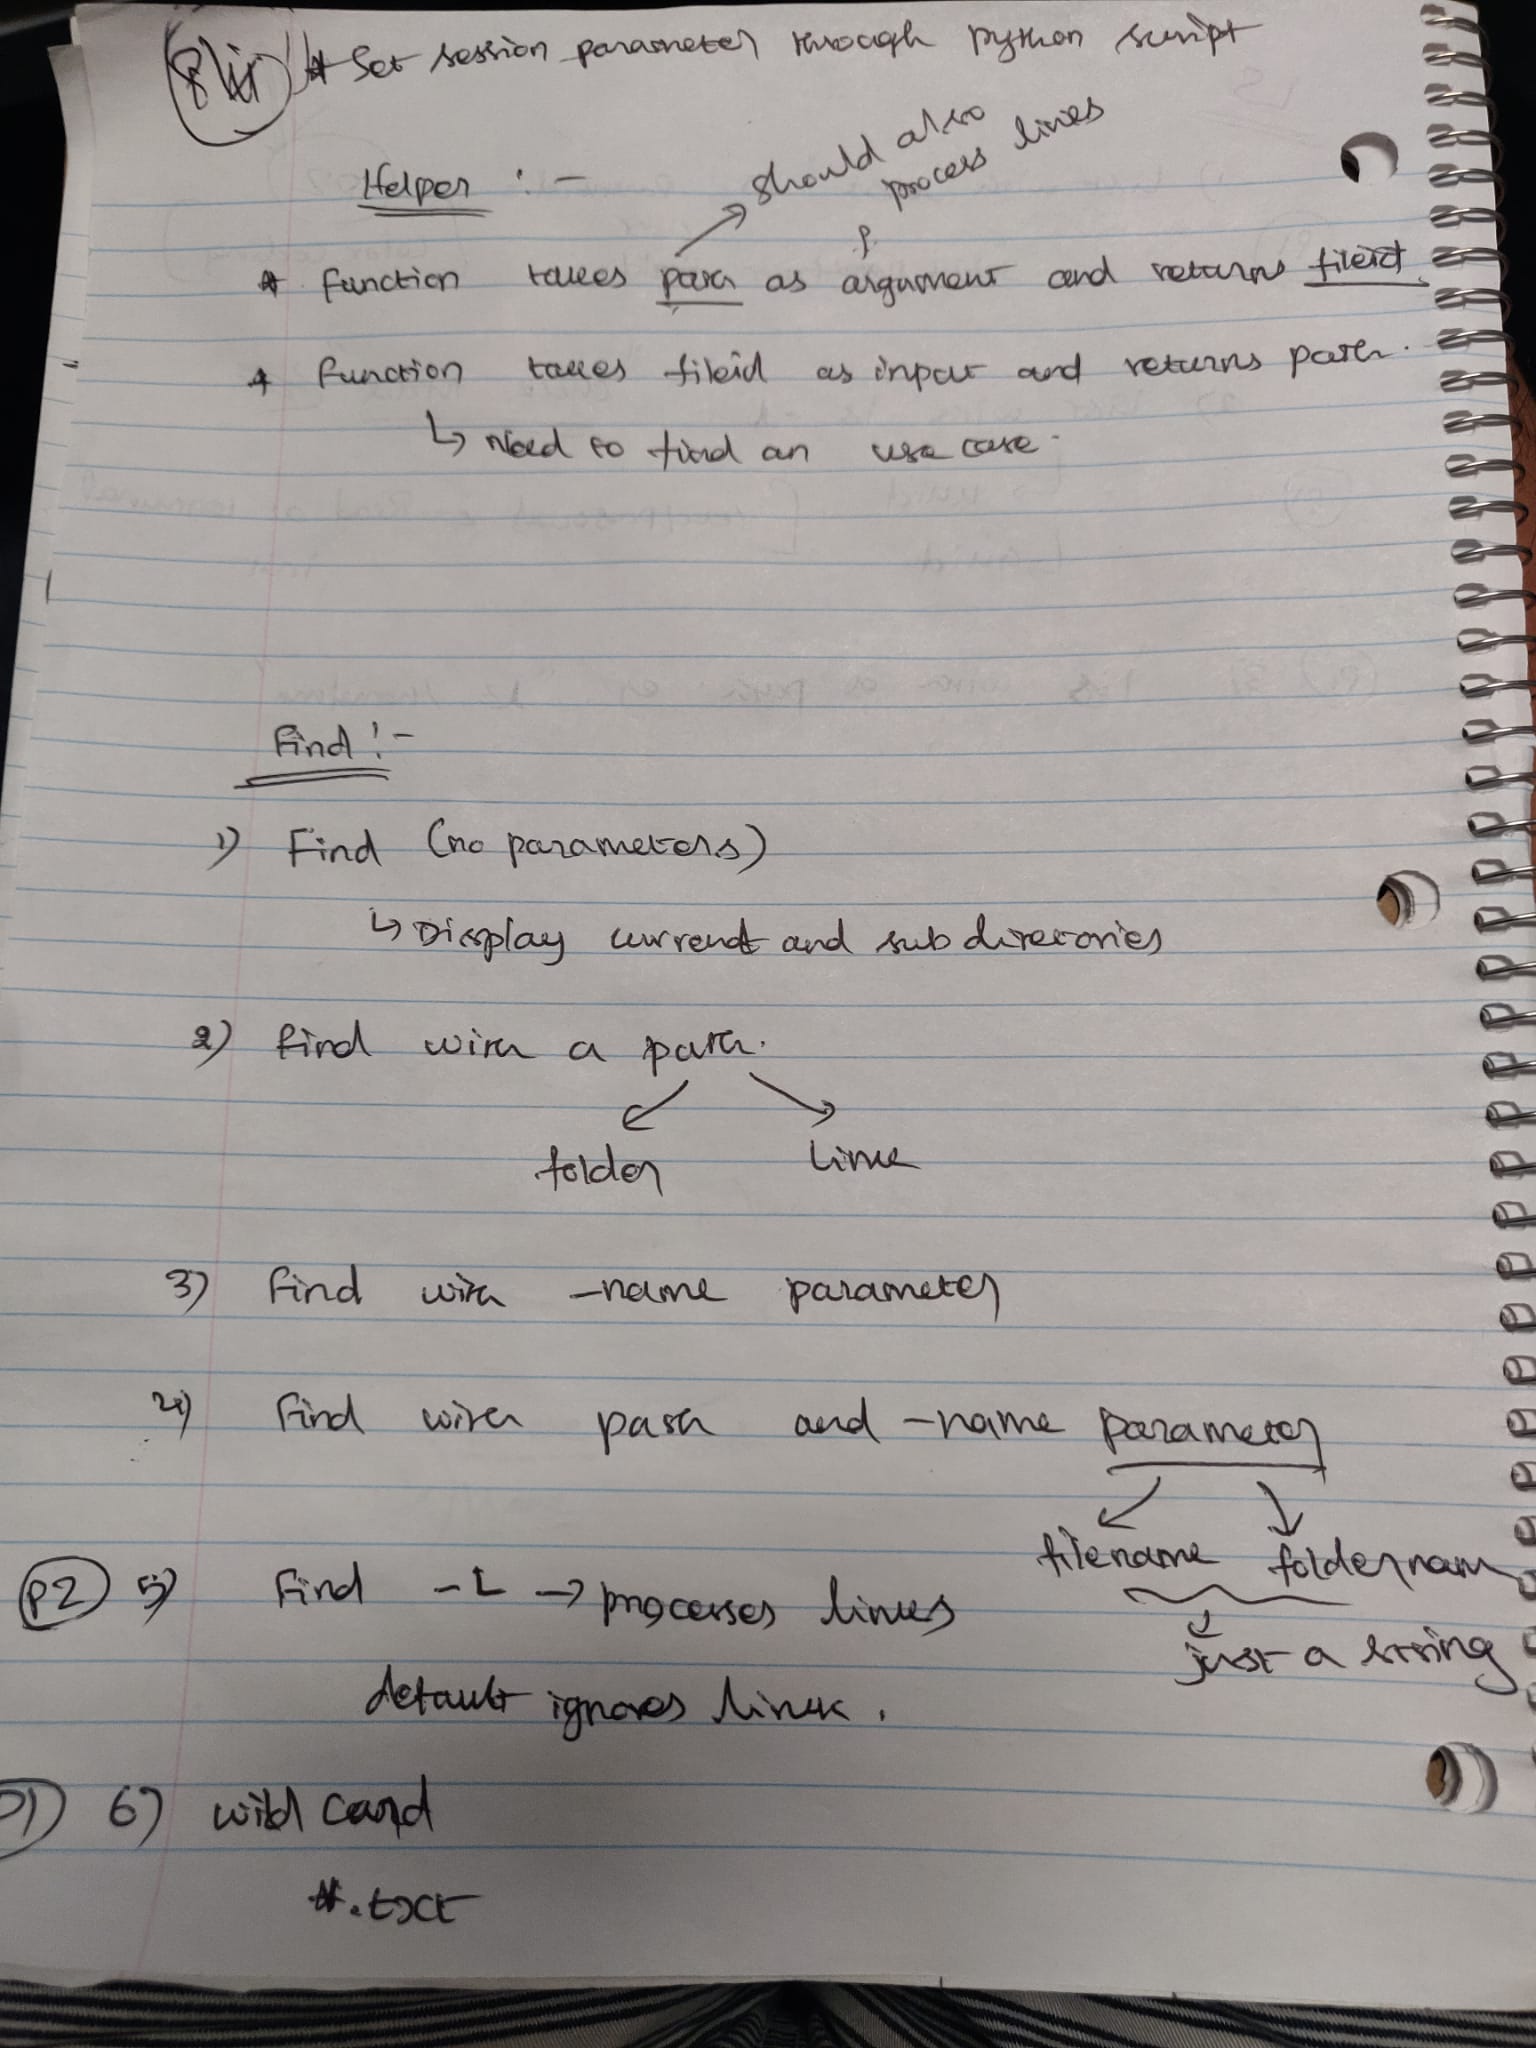 * Set session parameter through python script
Helper :-
should also
process links
* Function takes path as argument and returns fileid.
* Function takes fileid as input and returns path.
↳ Need to find an use case.
Find :-
1) Find (no parameters)
↳ Display current and sub directories
2) Find with a path.
folder link
3) Find with -name parameter
4) Find with path and -name parameter
filename foldernam
just a string
P2 5) Find -L → processes links
default ignores link.
P1 6) wild card
*.txt